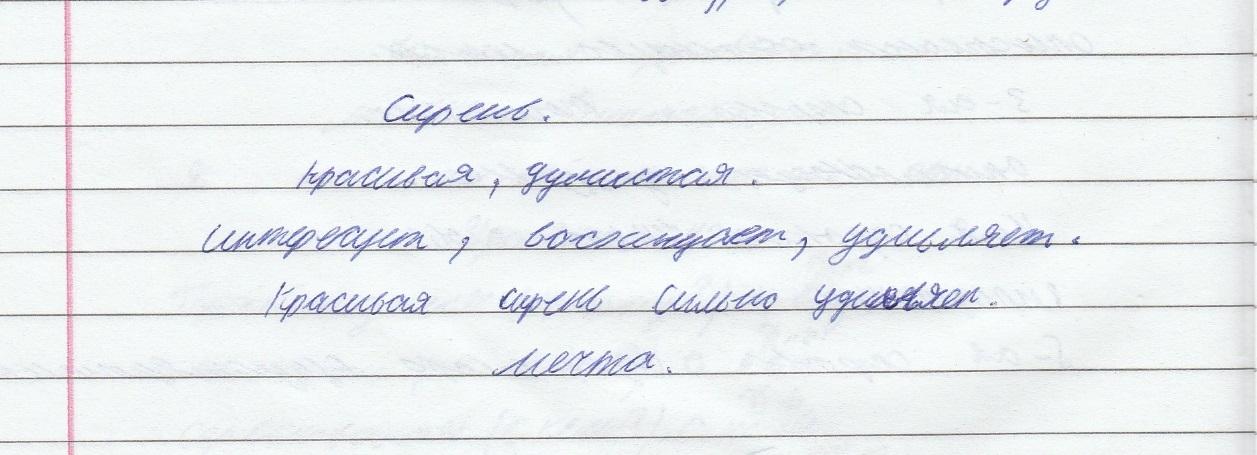 Сирень.
Красивая, душистая.
Интересует, восхищает, удивляет.
Красивая сирень сильно удивляет.
Мечта.